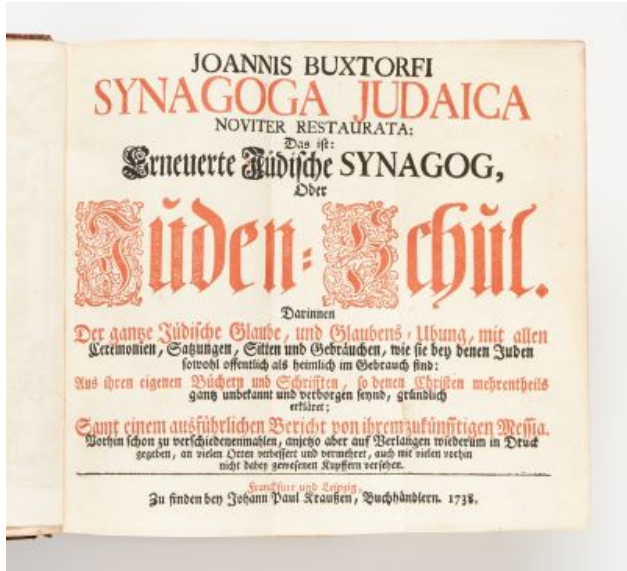 JOANNIS BUXTORFI
SYNAGOGA JUDAICA
NOVITER RESTAURATA:
Das ist:
Erneuerte Jüdische SYNAGOG,
Oder
Juden-Schul.
Darinnen
Der gantze Jüdische Glaube, und Glaubens-Ubung, mit allen
Ceremonien, Satzungen, Sitten und Gebräuchen, wie sie bey denen Juden
sowohl offentlich als heimlich im Gebrauch sind:
Aus ihren eigenen Büchern und Schrifften, so denen Christen mehrentheils
gantz unbekannt und verborgen seynd, gründlich
erkläret;
Samt einem ausführlichen Bericht von ihrem zukünfftigen Messia.
Vorhin schon zu verschiedenenmahlen, anjetzo aber auf Verlangen wiederum in Druck
gegeben, an vielen Orten verbessert und vermehret, auch mit vielen vorhin
nicht dabey gewesenen Kupffern versehen.
Franckfurt und Leipzig,
Zu finden bey Johann Paul Kraußen, Buchhändlern. 1738.